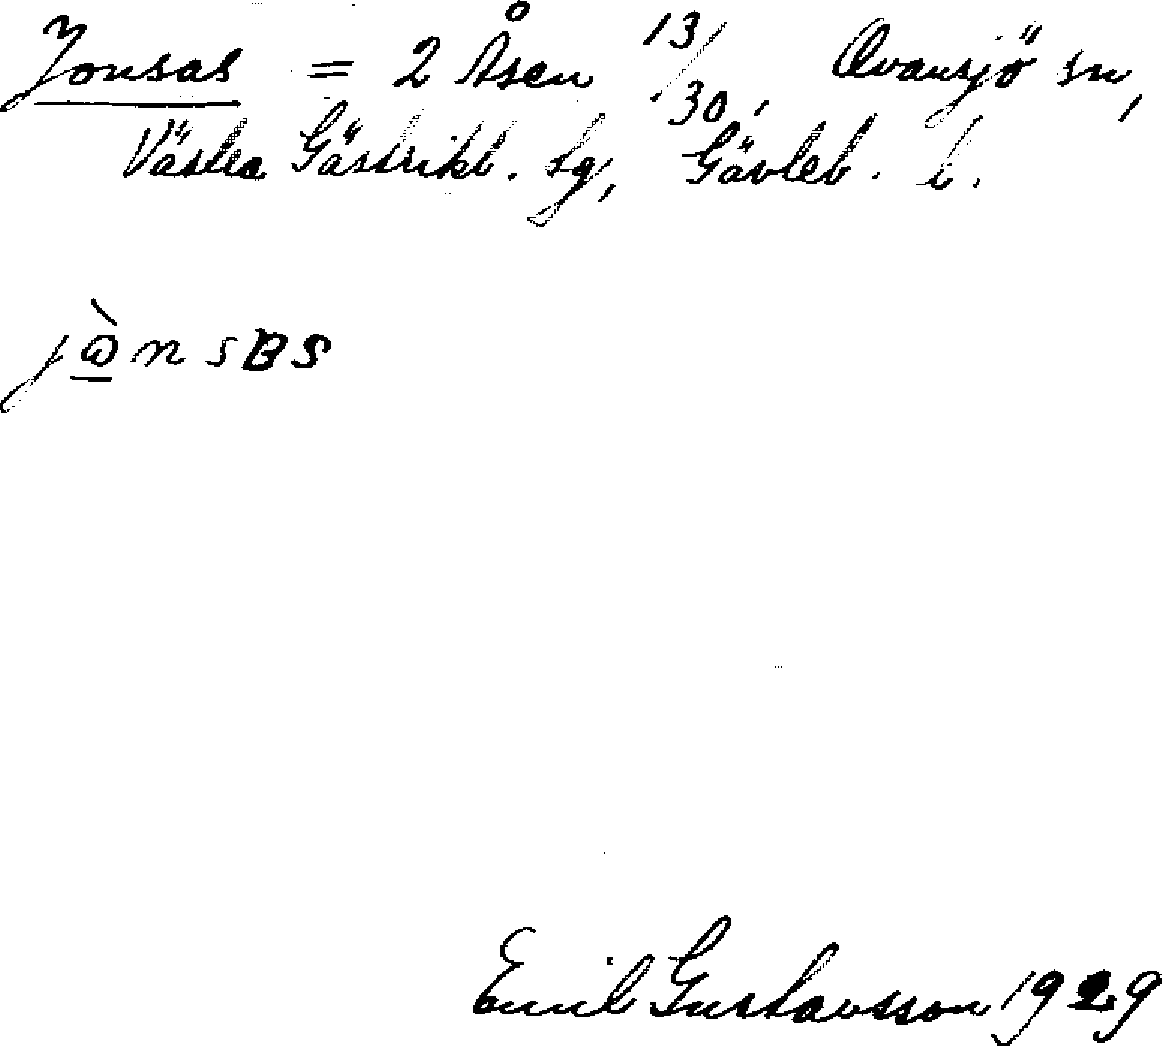 Jonsas = 2 Åsen 13/30, Ovansjö sn,
Västra Gästrikl. tg, Gävleb. l.
jὼnsBS
Emil Gustavsson 1929